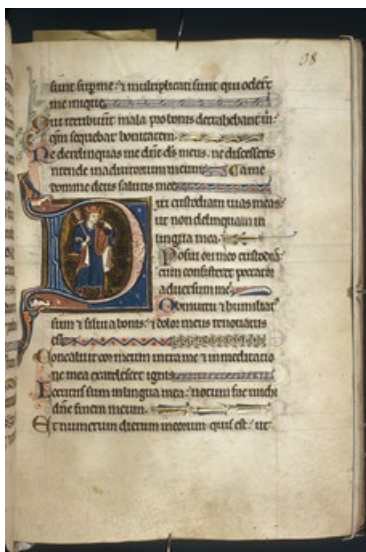 sunt sup me. ⁊ multiplicati sunt qui oderūt
me inique.
Qui retribuūt mala pro bonis detrahebant m̄:
qm̄ sequebar bonitatem.
Ne derelinquas me dn̄e ds̄ meus. ne discesseris
Intende in adiutorium meum: a me
domine deus salutis mee.
Dixi custodiam uias meas:
ut non delinquam in
lingua mea.
Posui ori meo custodiā:
cum consisteret peccator
aduersum me.
Obmutui ⁊ humiliat'
sum ⁊ silui a bonis: ⁊ dolor meus renouatus
est.
Concaluit cor meum intra me ⁊ in meditatio
ne mea exardescet ignis.
Locutus sum in lingua mea: notum fac michi
dn̄e finem meum.
Et numerum dierum meorum quis est: ut